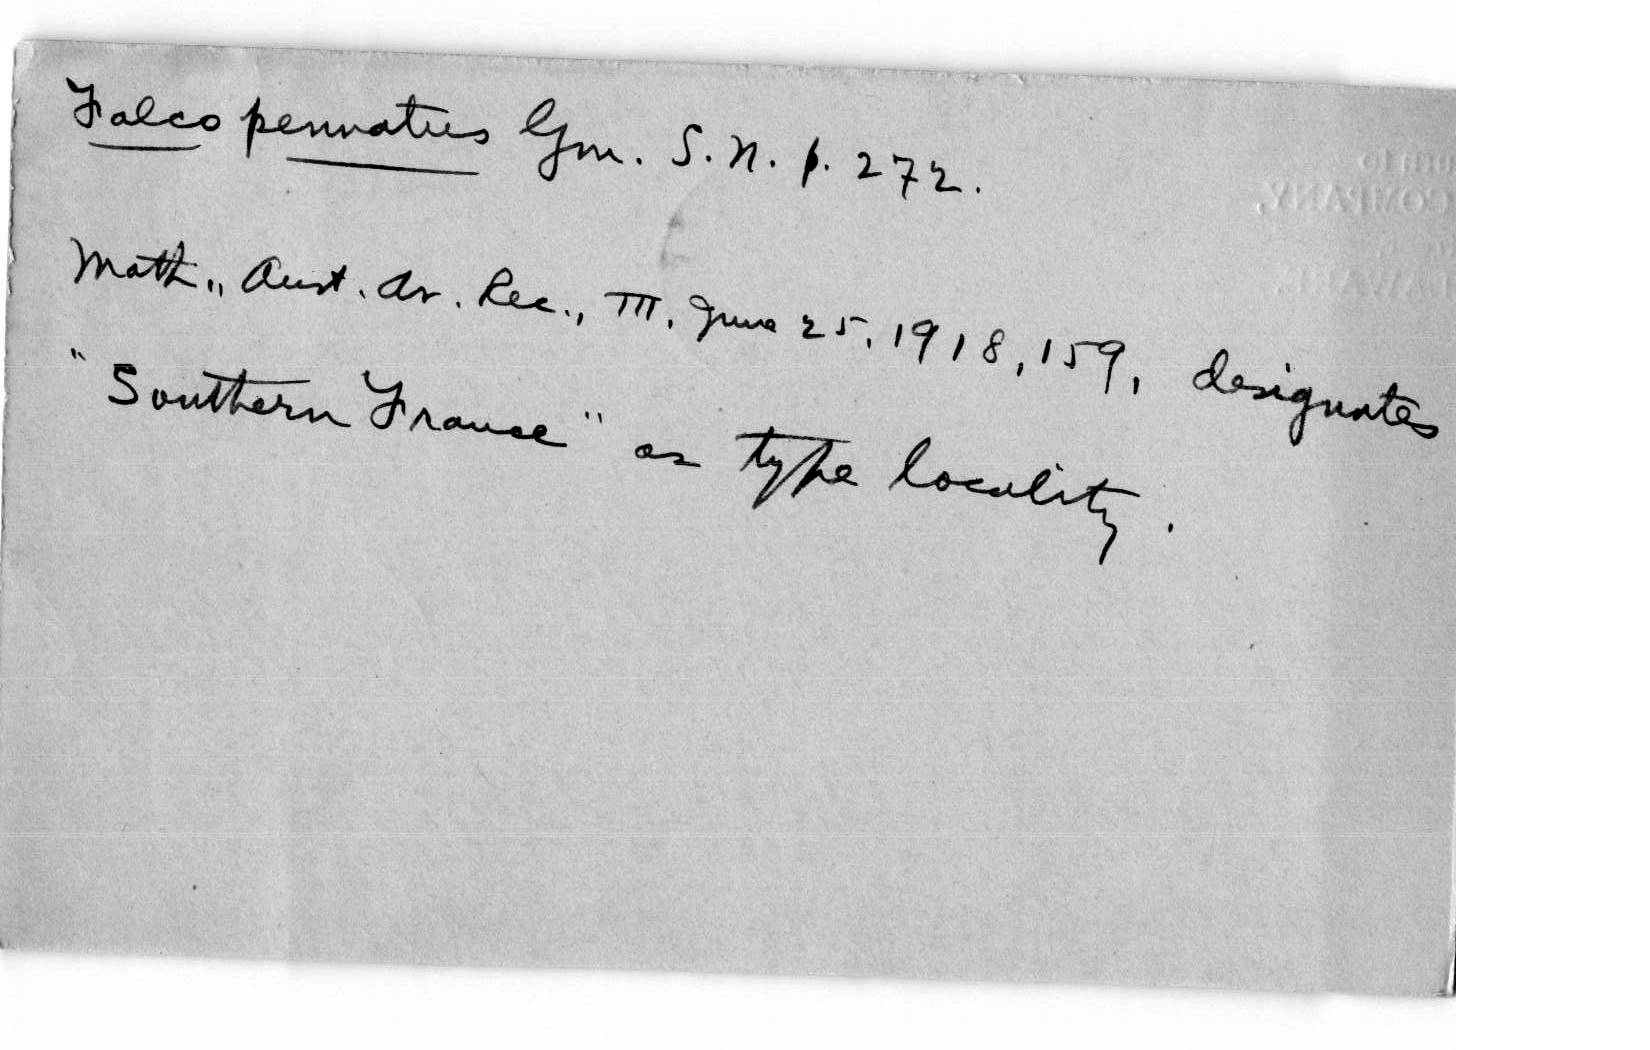 Falco pennatus Gm. S.N. p. 272.
Math., Aust. Av. Rec., III, June 25, 1918, 159, designates
"Southern France" as type locality.
COMPANY,